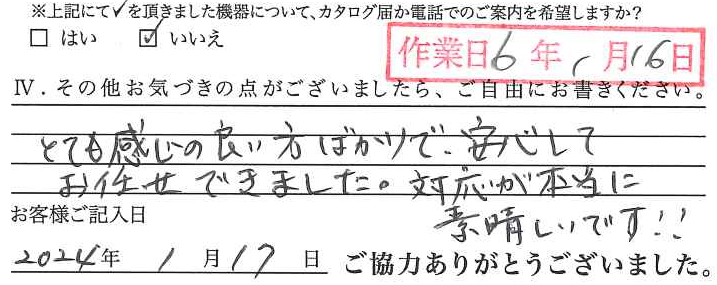 ※上記にて✓を頂きました機器について、カタログ届か電話でのご案内を希望しますか?
□ はい ☑ いいえ
作業日6年1月16日
Ⅳ．その他お気づきの点がございましたら、ご自由にお書きください。
とても感じの良い方ばかりで、安心して
お任せできました。対応が本当に
素晴しいです!!
お客様ご記入日
2024年 1月17日 ご協力ありがとうございました。